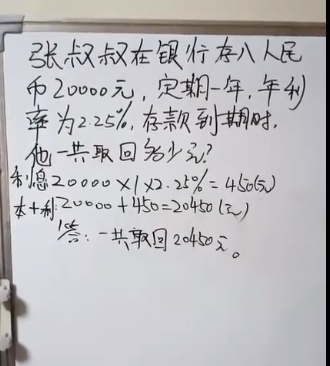 张叔叔在银行存入人民
币20000元，定期一年，年利
率为2.25%，存款到期时，
他一共取回多少元？
利息20000×1×2.25%=450(元)
本+利:20000+450=20450(元)
答：一共取回20450元。